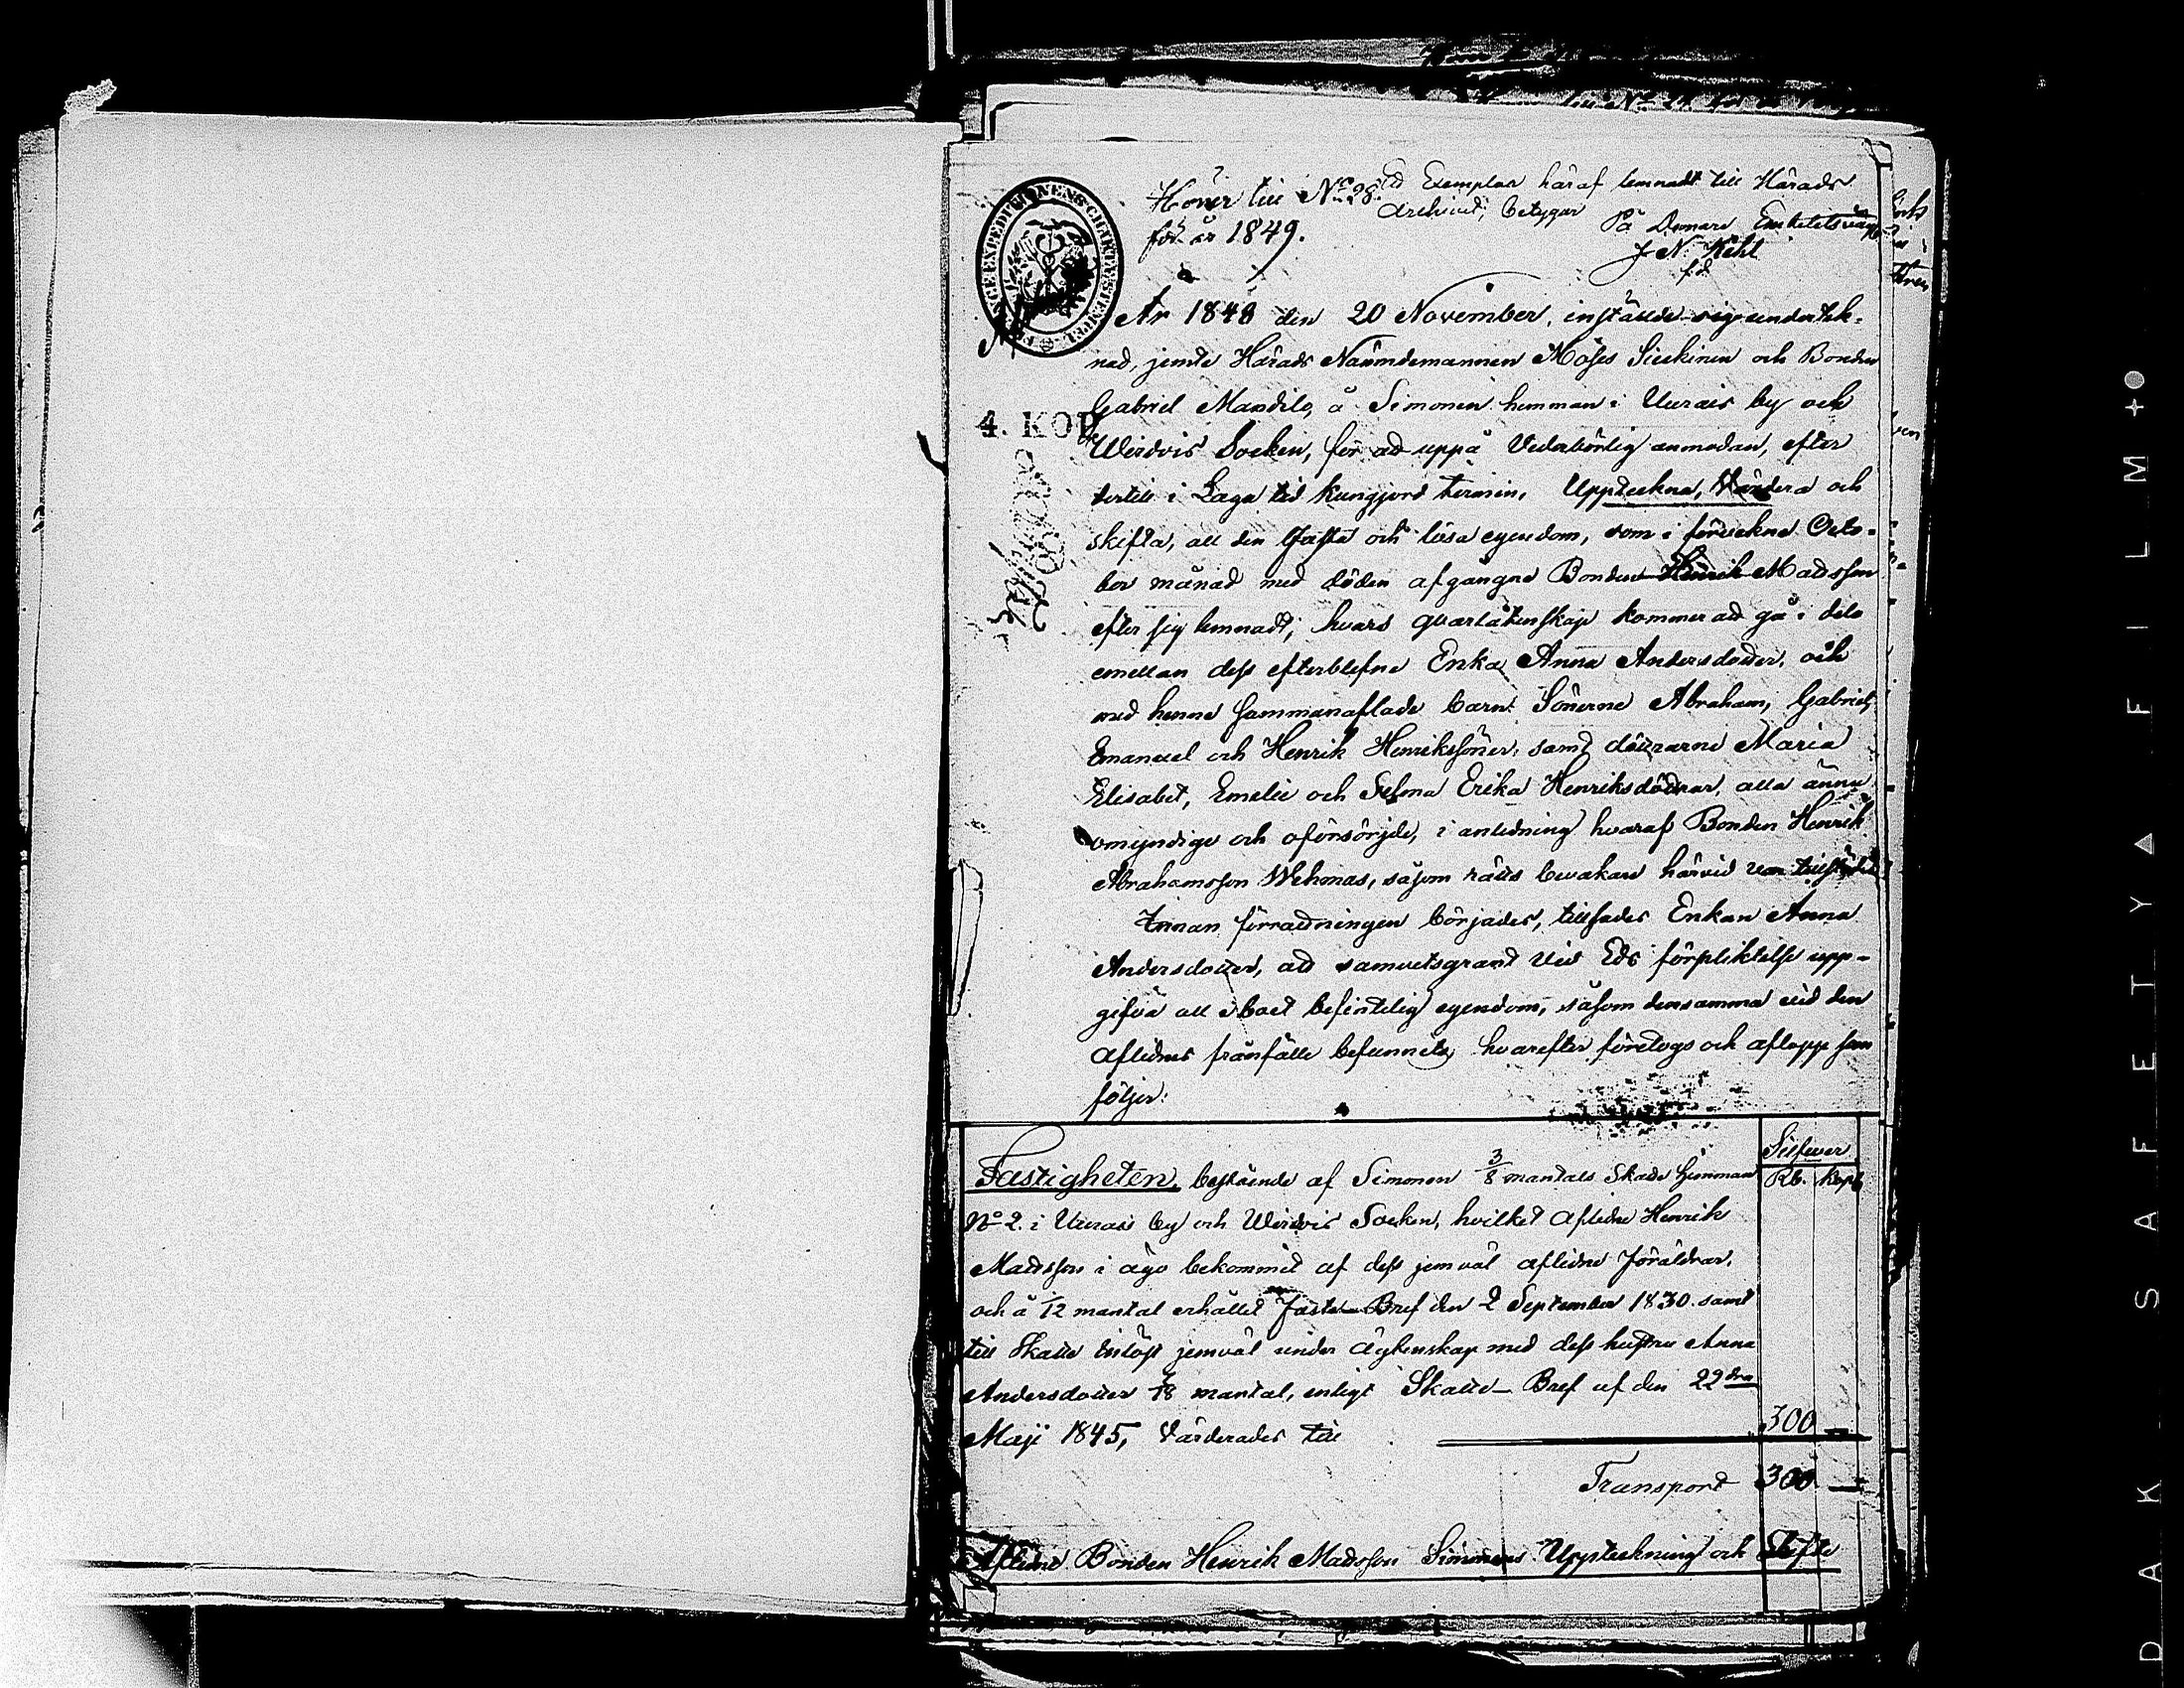 Hörer till No 28.
för år 1849.
Ed Exemplar häraf lemnadt till Härads
Archivet, betygar
På Domare Embetets väg
J N: Kihl
4. KOP
År 1848 den 20 November, instälde sig underteck-
nad, jemte Härads Nämndemannen Moses Siukinen och Bonden
Gabriel Mandilo, å Simonen hemman i Uurais by och
Wirdois Socken, för ad uppå Vederbörlig anmodan, efter
dertill i Laga tid kungjord termin, Uppteckna, Värdera och
skifta, all den fasta och lösa egendom, som i förvekne Octo-
ber månad med döden afgångne Bonden Henrik Madsson
efter sig lemnadt, hvars qvarlåtenskap kommer ad gå i dels
emellan dess efterblefne Enka Anna Andersdotter, och
med henne sammanaflade barn: Sönerne Abraham, Gabriel,
Emanuel och Henrik Henrikssöner, samt döttrarne Maria
Elisabet, Emelie och Selma Erika Henriksdöttrar, alla ännu
omyndige och oförsörjde, i anledning hvaraf Bonden Henrik
Abrahamsson Wehmas, såsom rätts bevakare härvid var tillstädes
Innan förrättningen börjades, tillsades Enkan Anna
Andersdotter, att samvetsgrant vid Eds förpliktelse upp-
gifva all i boet befintelig egendom, såsom densamma vid den
Aflidnes frånfälle befunnets, hvarefter företogs och aflopp som
följer:
Silfwer
Fastigheten, bestående af Simonen 3/8 mantals Skatte Hemman Rb. Kop
No 2. i Uurais by och Wirdois Socken, hvilket Aflidne Henrik
Madsson i ägo bekommit af dess jemväl aflidne föräldrar,
och å 1/12 mantal erhållet Faste-Bref den 2 September 1830. samt
till Skatte inlöst jemväl under ägtenskap med dess hustru Anna
Andersdotter 7/18 mantal, enligt Skatte-Bref af den 22dra
Maji 1845, Värderades till 300 —
Transport 300 —
Aflidne Bonden Henrik Madsson Simonens Uppteckning och Skifte
DAK SAFETY ▲ FILM +●